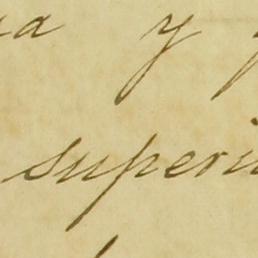 y
superi